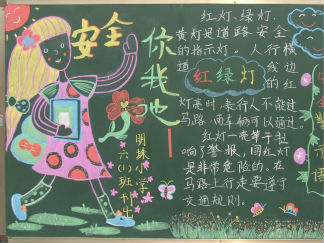 安全
你我他
明珠小学
六(1)班刊出
红灯、绿灯、
黄灯是道路安全
的指示灯。人行横
道
线边
红绿灯
的红
灯亮时,来行人不能过
马路,而车辆可以通过。
红灯一亮等于拉
响了警报,闯红灯
是非常危险的。在
马路上行走要遵守
交通规则。